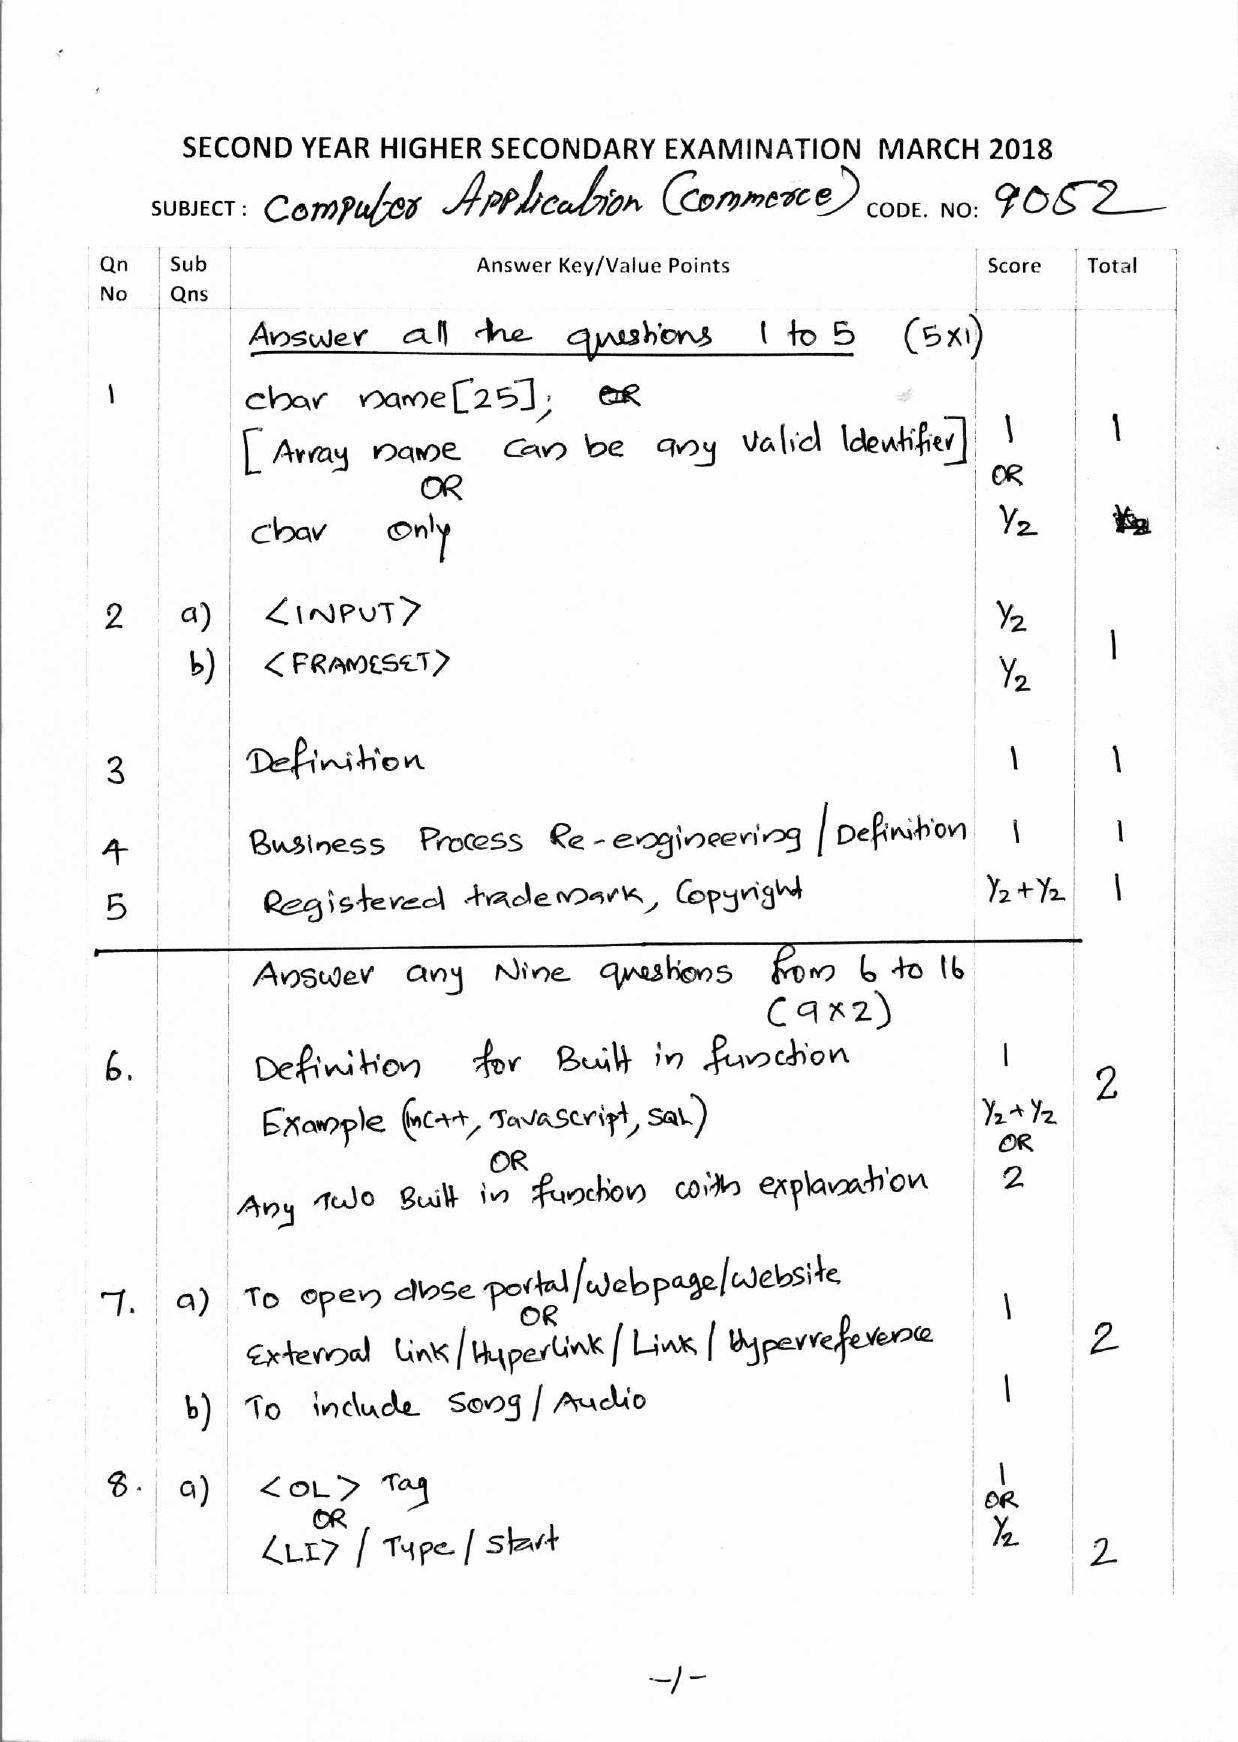 SECOND YEAR HIGHER SECONDARY EXAMINATION MARCH 2018
SUBJECT : Computer Application (Commerce) CODE. NO: 9052
Qn No Sub Qns Answer Key/Value Points Score Total
Answer all the questions 1 to 5 (5x1)
1 char name[25]; OR
[Array name can be any valid Identifier] 1 1
OR OR
char only 1/2
2 a) <INPUT> 1/2
b) <FRAMESET> 1/2 1
3 Definition 1 1
4 Business Process Re-engineering / Definition 1 1
5 Registered trademark, Copyright 1/2+1/2 1
Answer any Nine questions from 6 to 16
(9x2)
6. Definition for Built in function 1 2
Example (inC++, Javascript, SQL) 1/2+1/2
OR OR
Any Two Built in function with explanation 2
7. a) To open dhse portal/webpage/website 1
OR
External Link/HyperLink / Link / Hyperreference 2
b) To include Song / Audio 1
8. a) <OL> Tag 1
OR OR
<LI> / Type / Start 1/2 2
-1-